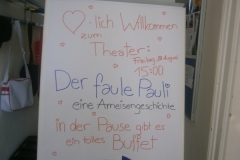 -lich Willkommen
zum
Theater:
15:00
Der faule Pauli
eine Ameisengeschichte
in der Pause gibt es
ein tolles Buffet